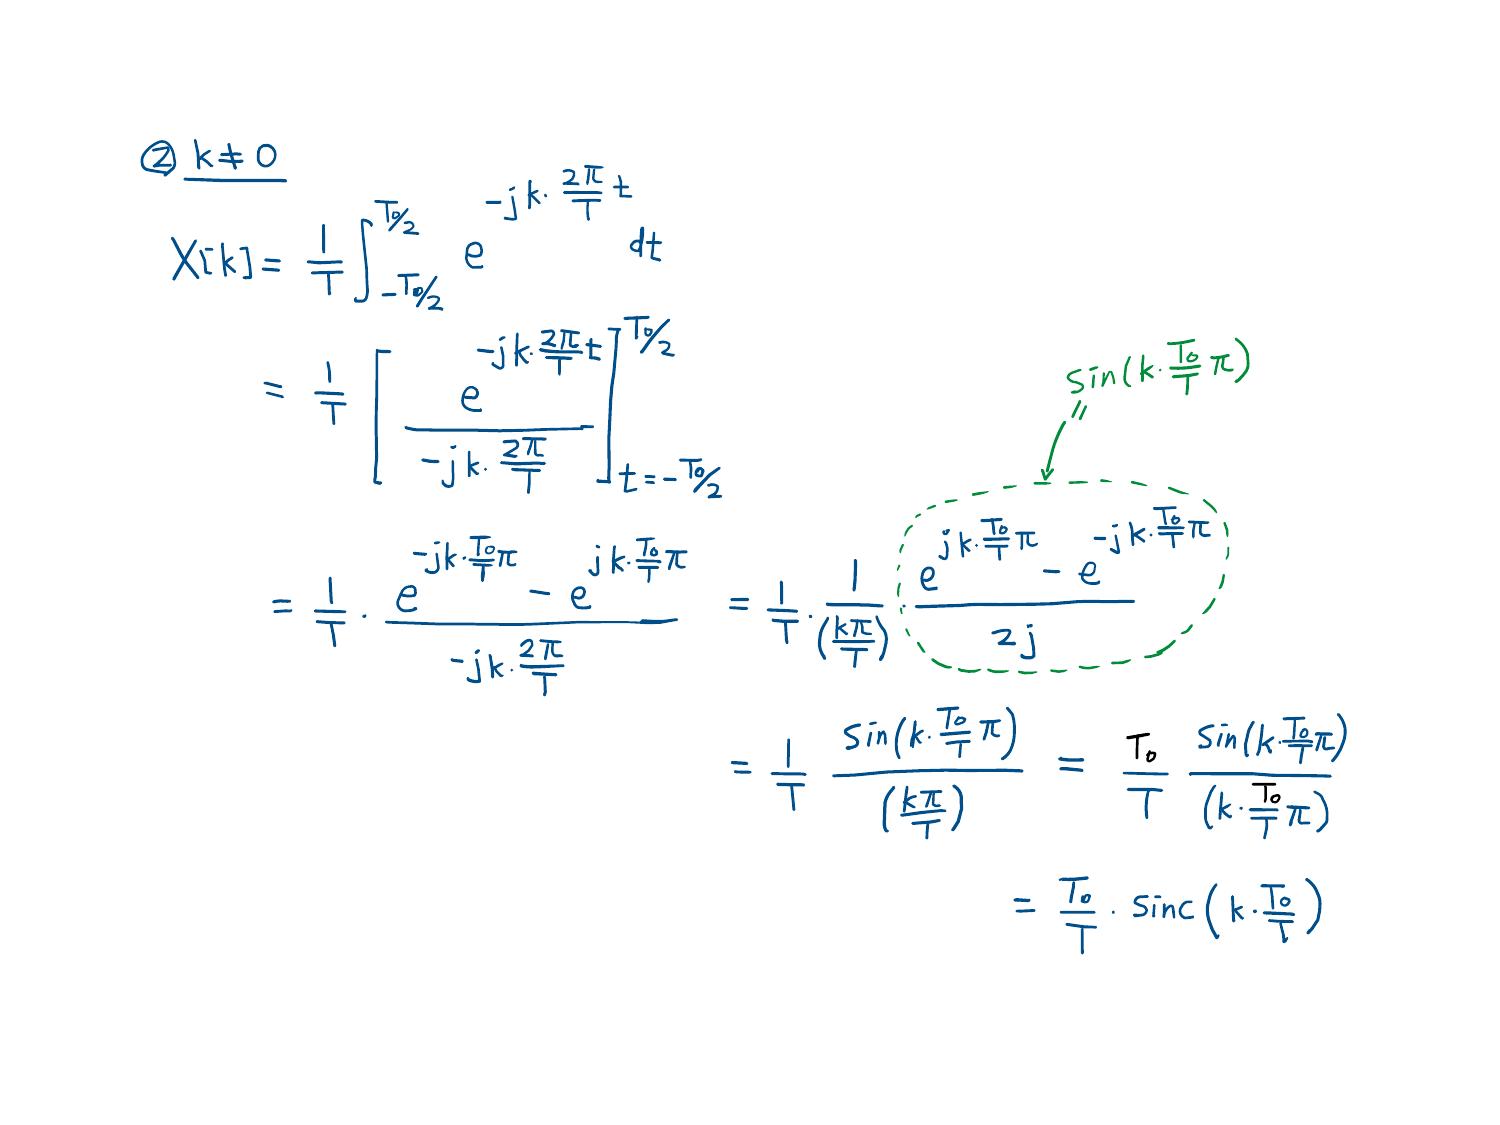 ② k ≠ 0
X[k] = \frac{1}{T} \int_{-T_0/2}^{T_0/2} e^{-jk \cdot \frac{2\pi}{T} t} dt
= \frac{1}{T} \left[ \frac{e^{-jk \cdot \frac{2\pi}{T} t}}{-jk \cdot \frac{2\pi}{T}} \right]_{t=-T_0/2}^{T_0/2}
sin(k \cdot \frac{T_0}{T} π)
=
= \frac{1}{T} \cdot \frac{e^{-jk \cdot \frac{T_0}{T} π} - e^{jk \cdot \frac{T_0}{T} π}}{-jk \cdot \frac{2π}{T}} = \frac{1}{T} \cdot \frac{1}{(\frac{kπ}{T})} \cdot \frac{e^{jk \cdot \frac{T_0}{T} π} - e^{-jk \cdot \frac{T_0}{T} π}}{2j}
= \frac{1}{T} \frac{sin(k \cdot \frac{T_0}{T} π)}{(\frac{kπ}{T})} = \frac{T_0}{T} \frac{sin(k \cdot \frac{T_0}{T} π)}{(k \cdot \frac{T_0}{T} π)}
= \frac{T_0}{T} \cdot sinc(k \cdot \frac{T_0}{T})